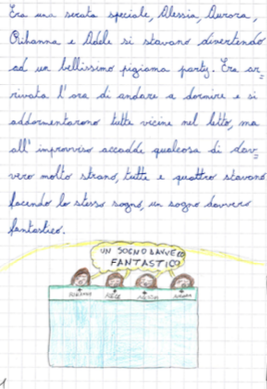 Era una serata speciale, Alessia, Aurora,
Rihanna e Adele si stavano divertendo
ad un bellissimo pigiama party. Era ar-
rivata l'ora di andare a dormire e si
addormentarono tutte vicine nel letto, ma
all'improvviso accadde qualcosa di dav-
vero molto strano, tutte e quattro stavano
facendo lo stesso sogno, un sogno davvero
fantastico.
UN SOGNO DAVVERO
FANTASTICO
RIHANNA ADELE ALESSIA AURORA
1